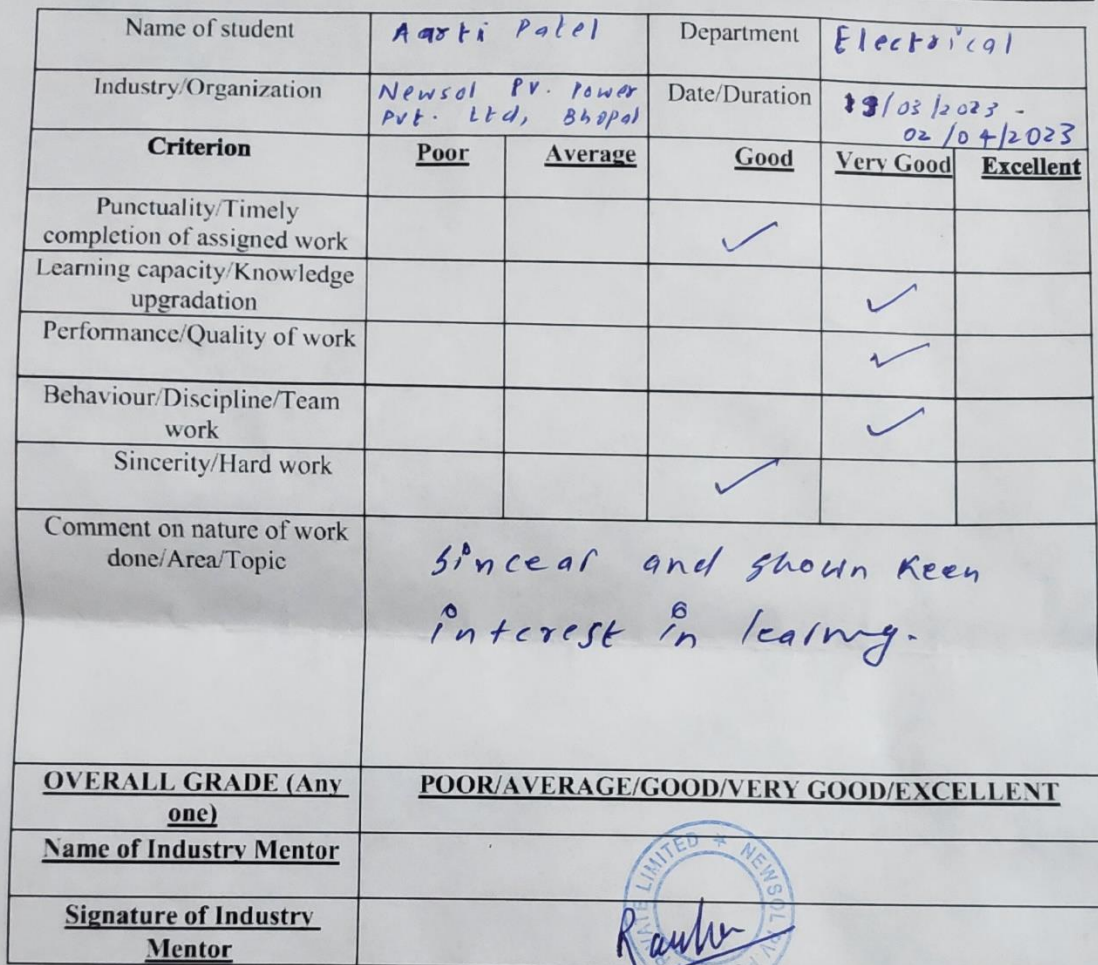 Name of student Aarti Patel Department Electrical
Industry/Organization Newsol PV. Power Date/Duration 19/03/2023 -
Pvt. Ltd, Bhopal 02/04/2023
Criterion Poor Average Good Very Good Excellent
Punctuality/Timely ✓
completion of assigned work
Learning capacity/Knowledge ✓
upgradation
Performance/Quality of work ✓
Behaviour/Discipline/Team ✓
work
Sincerity/Hard work ✓
Comment on nature of work
done/Area/Topic
Sincear and shown Keen
interest in learning.
OVERALL GRADE (Any POOR/AVERAGE/GOOD/VERY GOOD/EXCELLENT
one)
Name of Industry Mentor
Signature of Industry
Mentor
LIMITED * NEWSOL